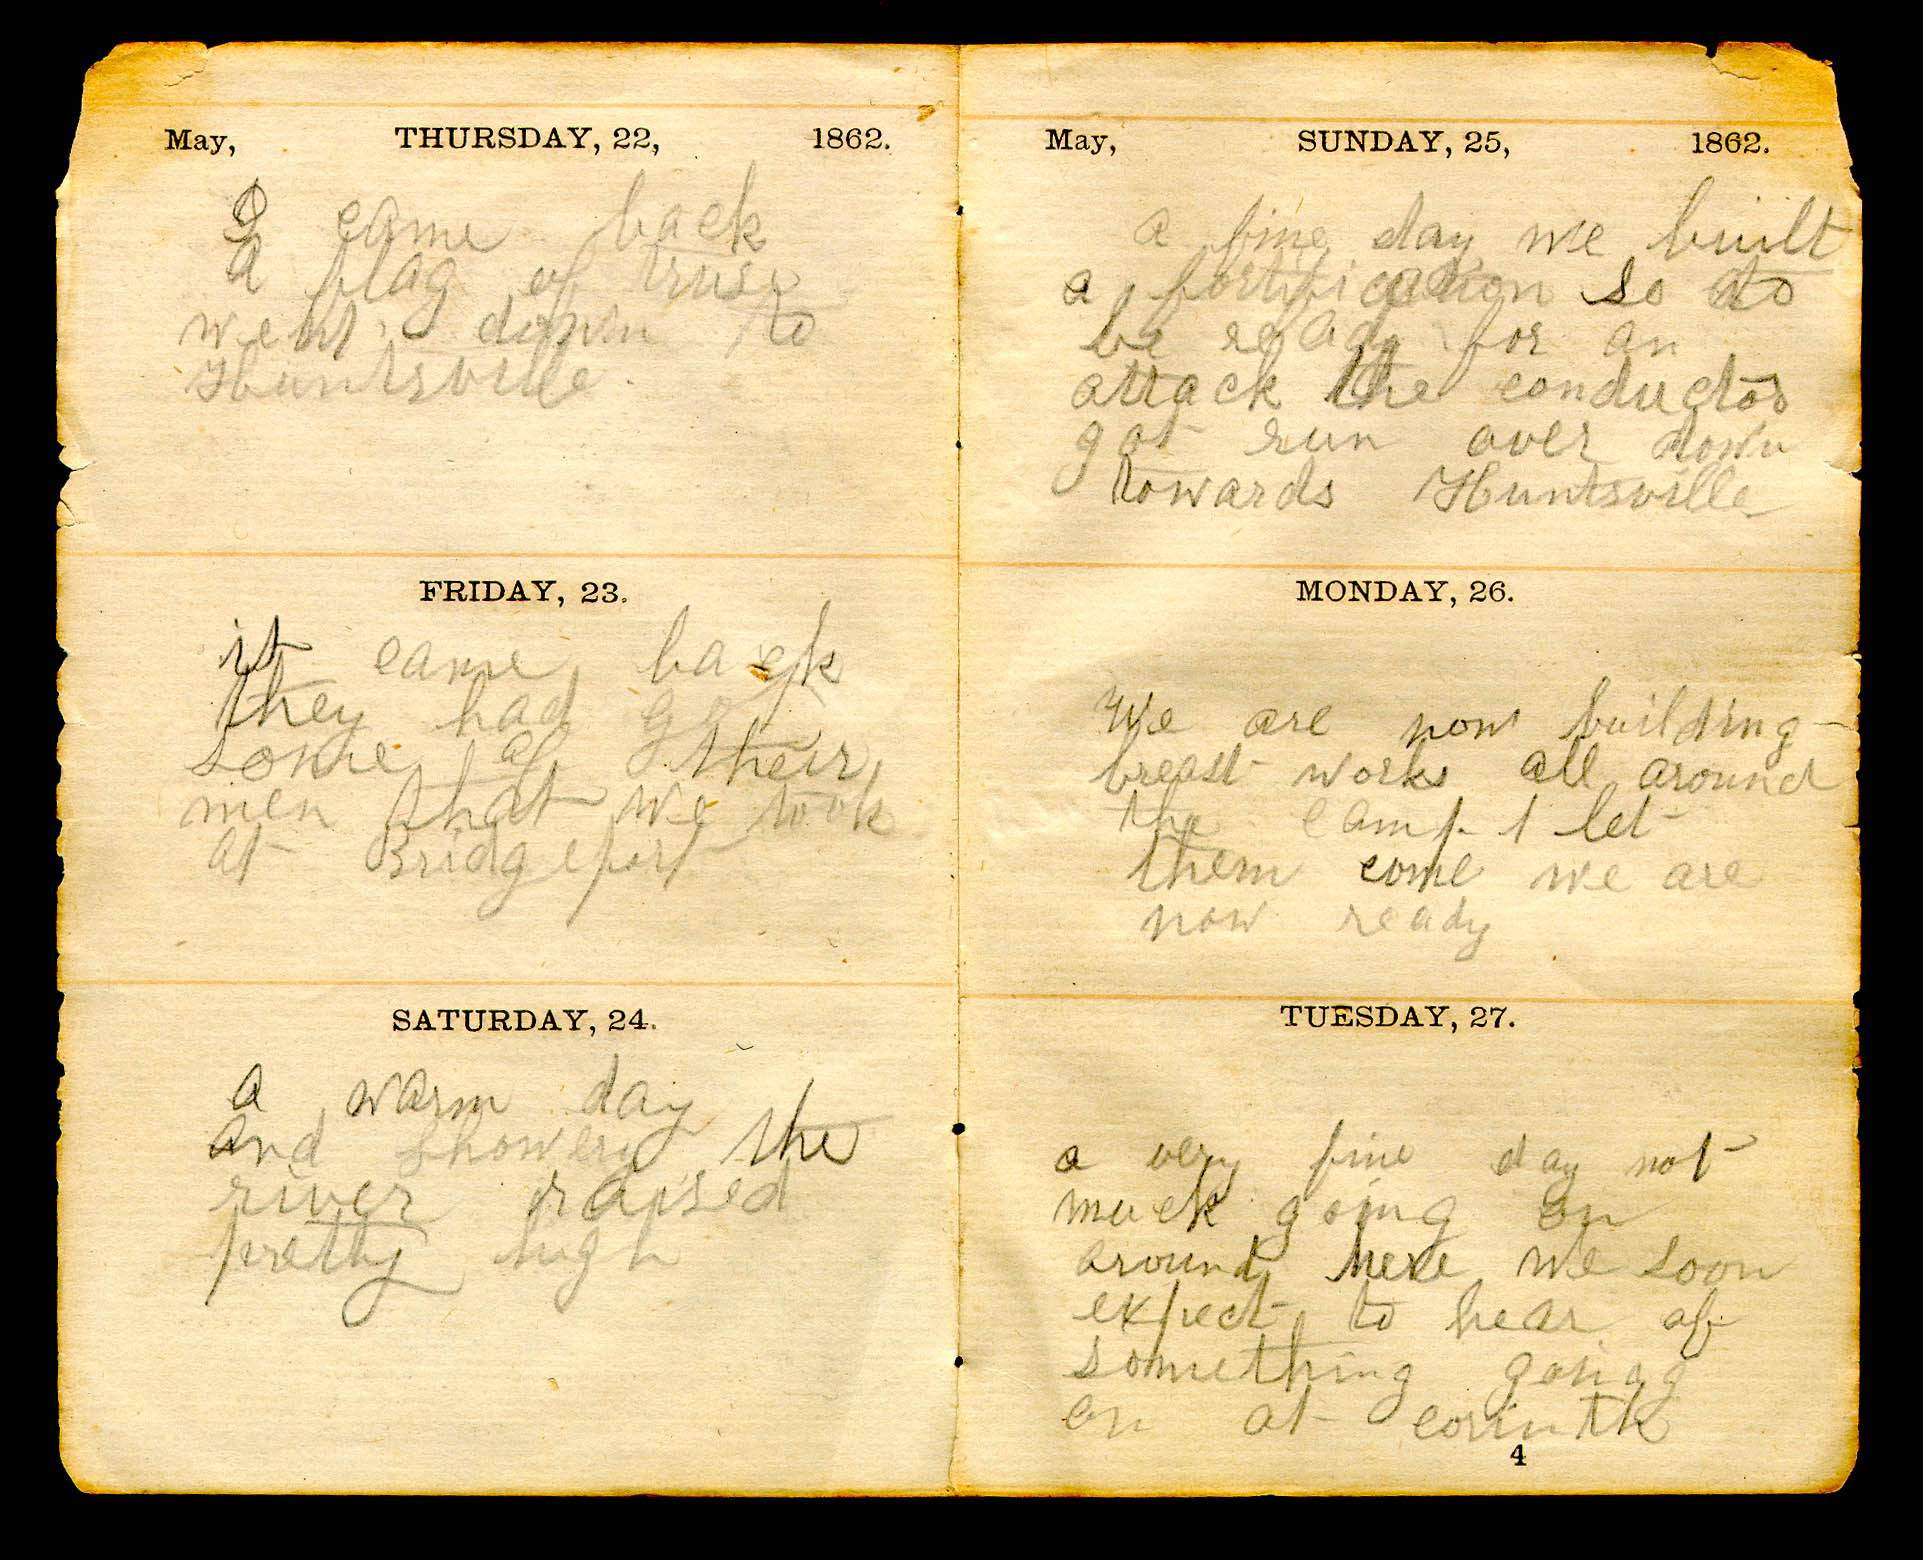 May, THURSDAY, 22, 1862.
I came back
a flag of truse
went down to
Huntsville
FRIDAY, 23.
it came back
they had got
some of their
men that we took
at Bridgeport
SATURDAY, 24.
a warm day
and showery the
river raised
pretty high
May, SUNDAY, 25, 1862.
a fine day we built
a fortification so to
be ready for an
attack the conductor
got run over down
towards Huntsville
MONDAY, 26.
We are now building
breast works all around
the camp let
them come we are
now ready
TUESDAY, 27.
a very fine day not
much going on
around here we soon
expect to hear of
something going
on at corinth
4